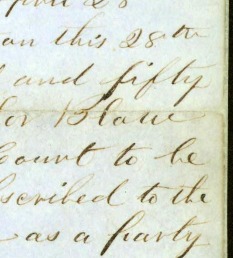 April 28
on this 28th
and fifty
for Blane
Court to be
bscribed to the
as a party